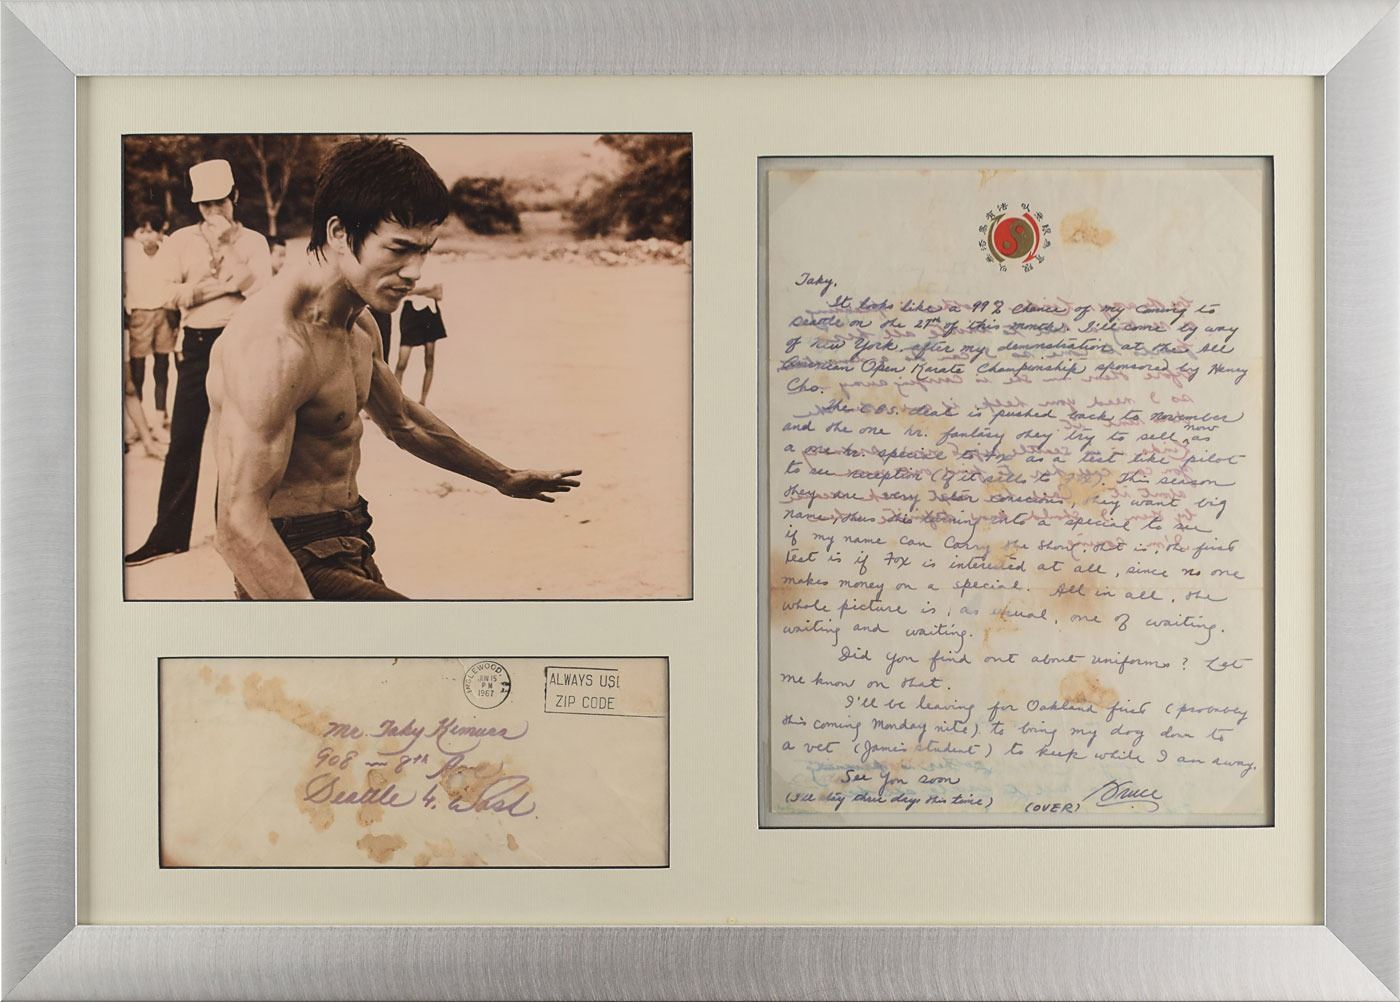 INGLEWOOD, CA
JUN 15
PM
1967
ALWAYS USE
ZIP CODE
Mr. Taky Kimura
908 - 8th Ave
Seattle 4, Wash.
Taky,
It looks like a 99% chance of my coming to
Seattle on the 27th of this month. I'll come by way
of New York, after my demonstration at the All
American Open Karate Championship sponsored by Henry
Cho.
The C.B.S. deal is pushed back to November
and the one hr. fantasy they try to sell now as
a one hr. special to Fox as a test like pilot
to see reception (if it sells to Fox). This season
they are very cautious, they want big
name, thus this turning into a special to see
if my name can carry the show. That is, the first
test is if Fox is interested at all, since no one
makes money on a special. All in all, the
whole picture is, as usual, one of waiting,
waiting and waiting.
Did you find out about uniforms? Let
me know on that.
I'll be leaving for Oakland first (probably
this coming Monday nite) to bring my dog down to
a vet (James student) to keep while I am away.
See you soon
Bruce
(I'll stay three days this time) (OVER)